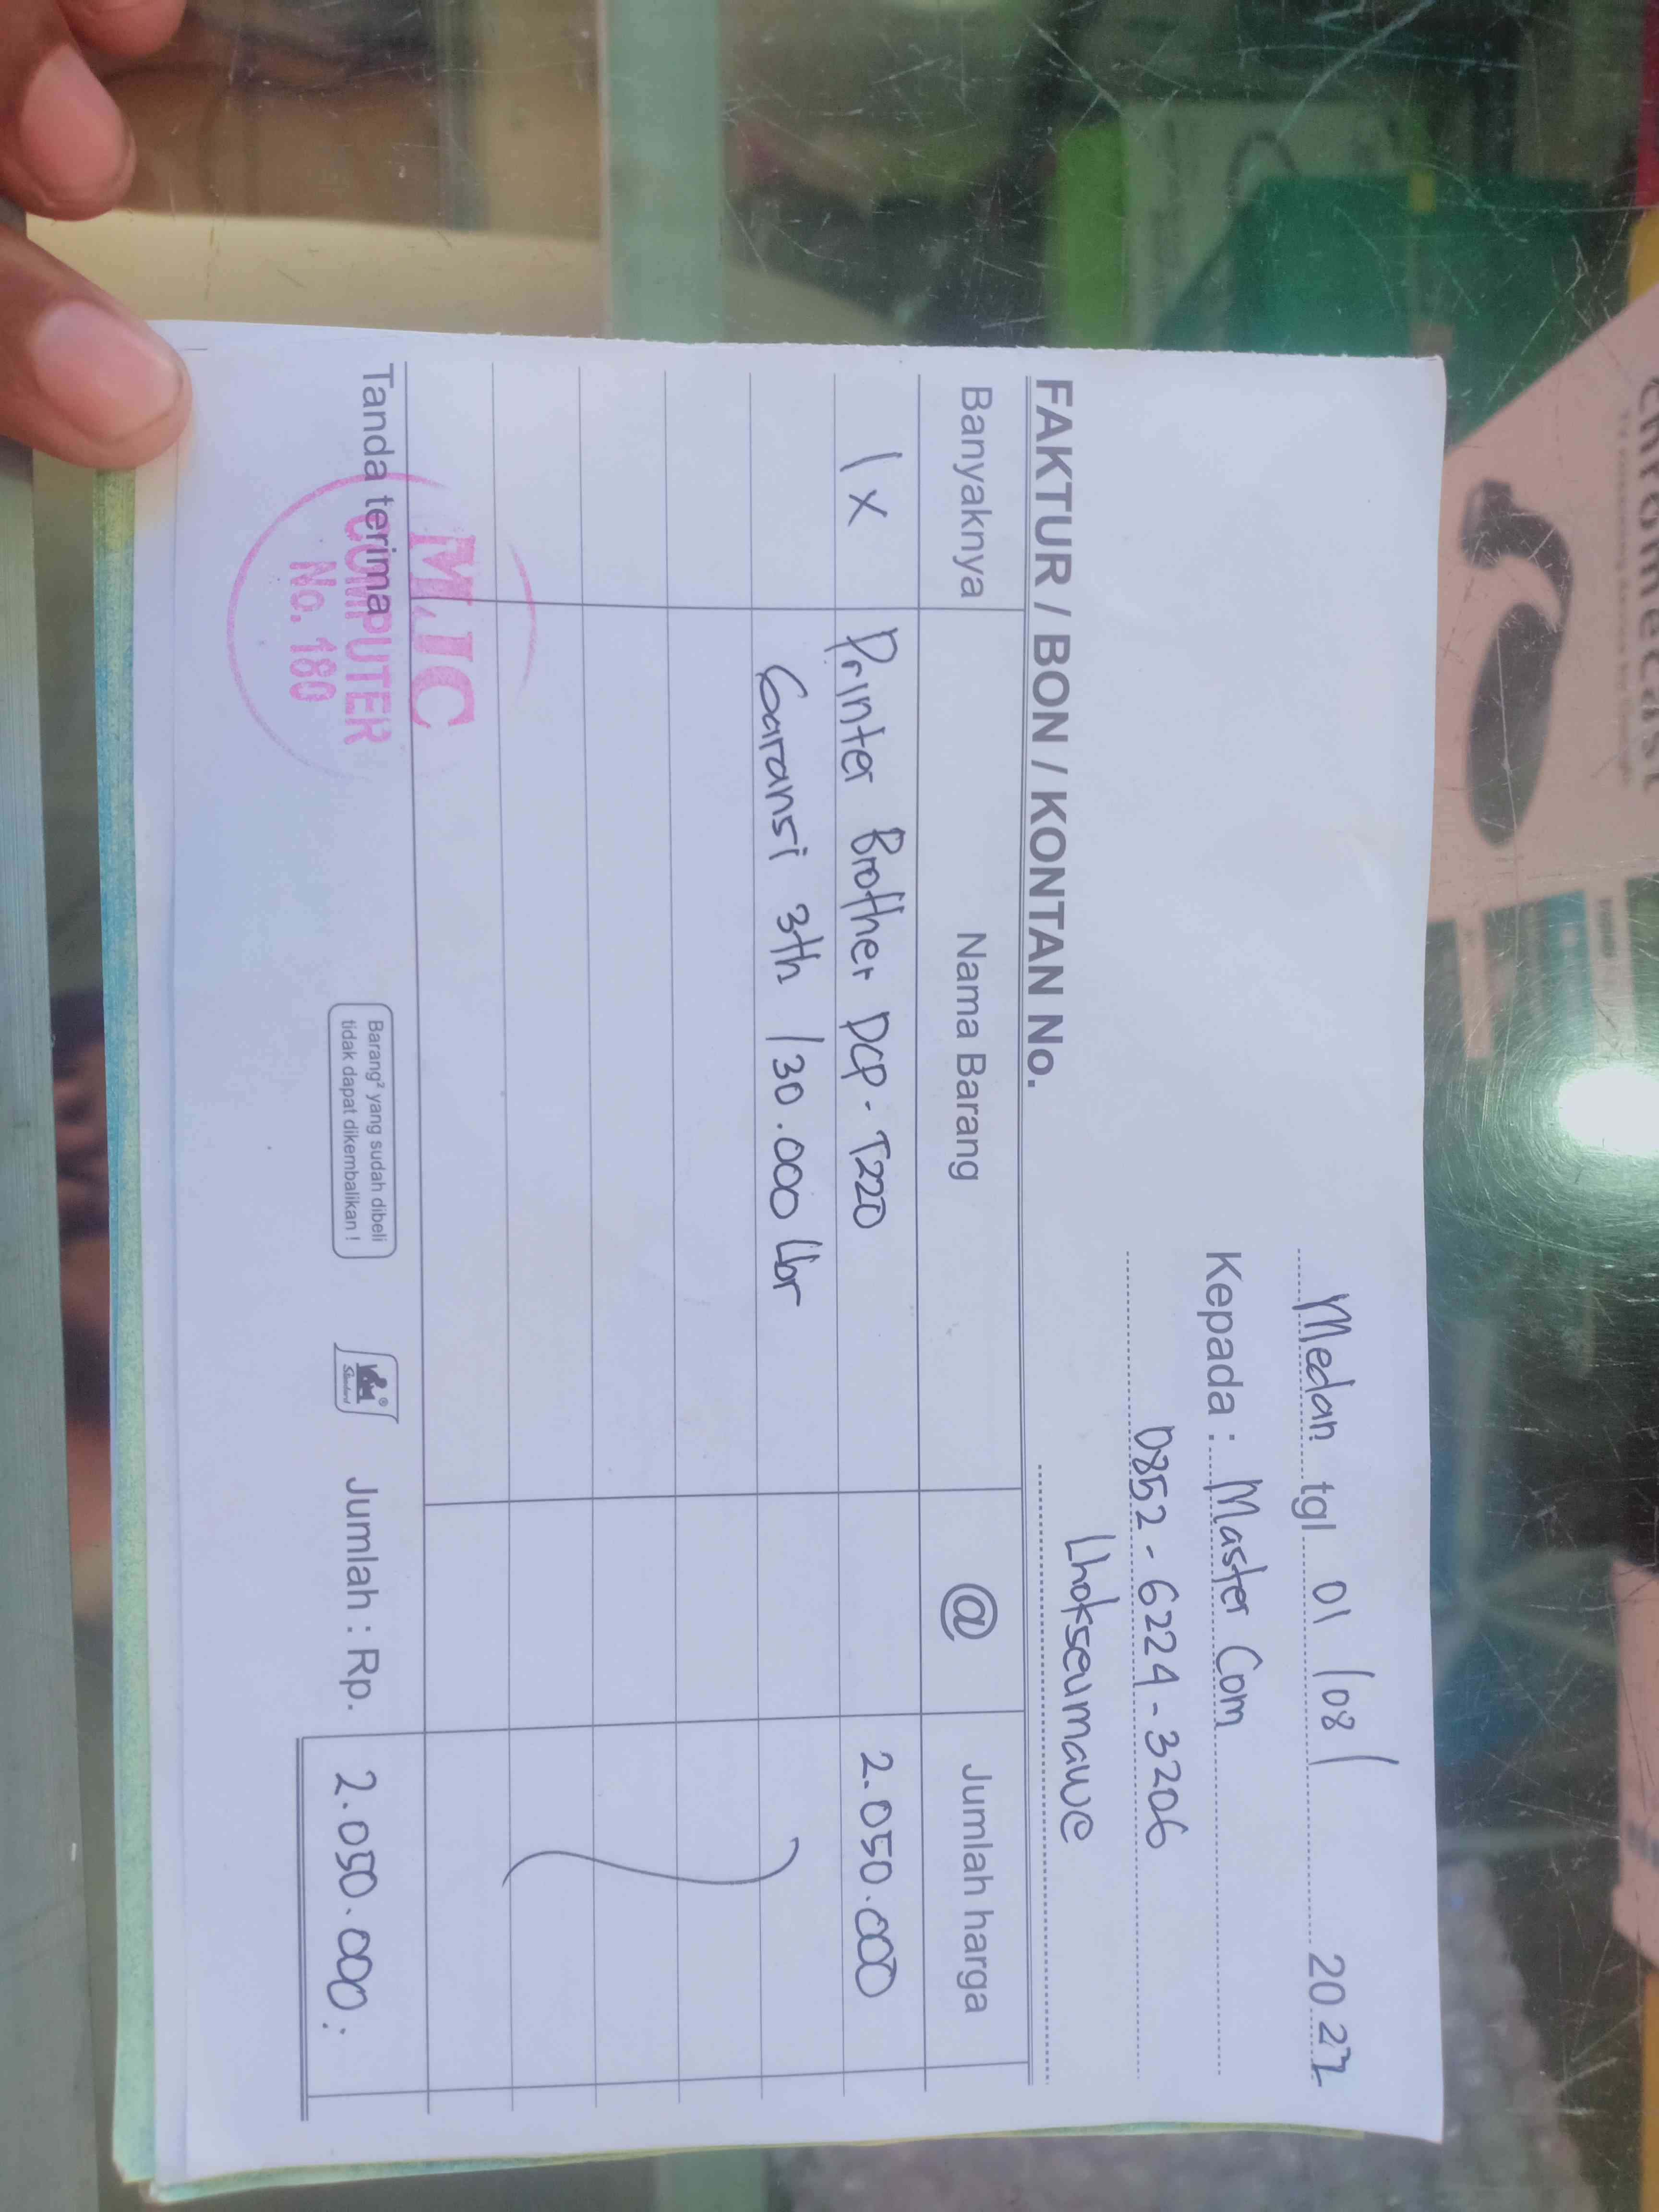 Medan tgl 01/08/ 2022
Kepada : Master Com
0852-6224-3206
Lhokseumawe
FAKTUR / BON / KONTAN No.
Banyaknya Nama Barang @ Jumlah harga
1 x Printer Brother DCP-T220 2.050.000
Garansi 3th /30.000 Lbr
Tanda terima
M.JC
COMPUTER
No. 180
Barang² yang sudah dibeli
tidak dapat dikembalikan !
Jumlah : Rp. 2.050.000